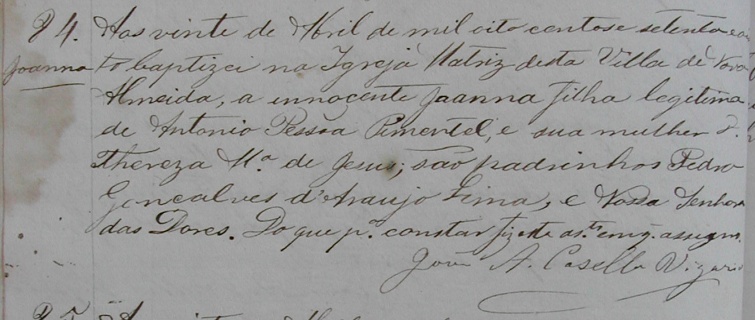 24. Aos vinte de Abril de mil oito centos e setenta e oi
Joanna to baptizei na Igreja Matriz desta Villa de Nova
Almeida, a innocente Joanna filha legitima
de Antonio Pessoa Pimentel, e sua mulher D.
Thereza Mª de Jesus; são padrinhos Pedro
Gonçalves d'Araujo Lima, e Nossa Senhora
das Dores. Do que pª constar fiz este as.to em q. assigno.
A. Casella Vigario